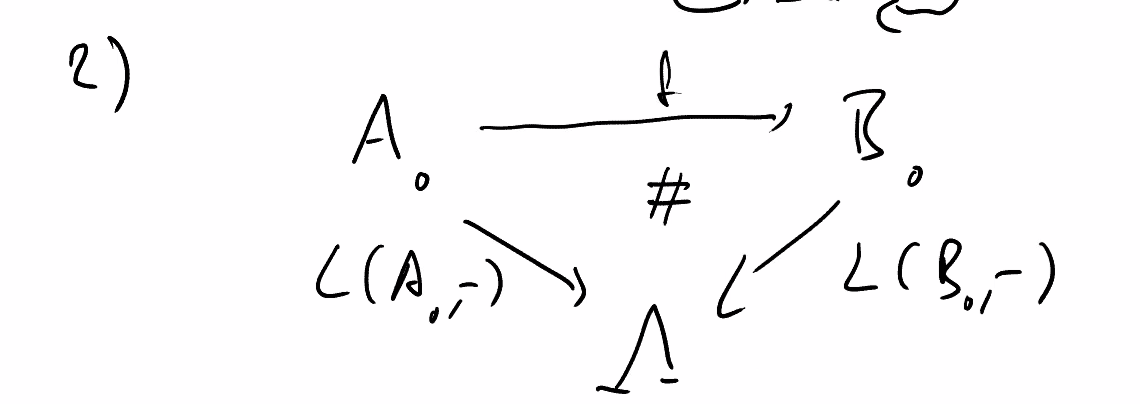 2)
f
A₀ B₀
#
L(A₀,-) L(B₀,-)
Λ